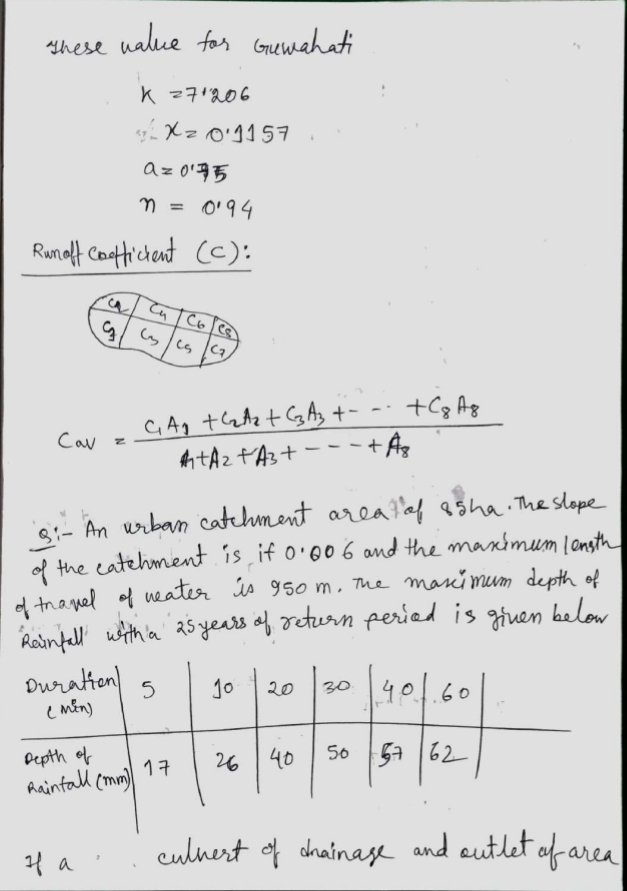 These value for Guwahati
K = 7.206
x = 0.1157
a = 0.75
n = 0.94
Runoff Coefficient (C):
C1 C4 C6 C8
C2 C3 C5 C7
Cav = C1A1 + C2A2 + C3A3 + - - - + C8A8
A1 + A2 + A3 + - - - - + A8
Q:- An urban catchment area of 85ha. The slope
of the catchment is if 0.006 and the maximum length
of travel of water is 950 m. The maximum depth of
Rainfall with a 25 years of return period is given below
Duration (min) 5 10 20 30 40 60
Depth of Rainfall (mm) 17 26 40 50 57 62
If a culvert of drainage and outlet of area